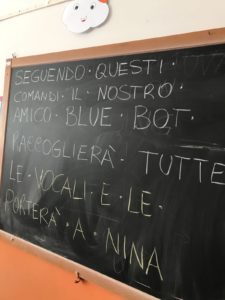 SEGUENDO · QUESTI ·
COMANDI · IL · NOSTRO
AMICO · BLUE · BOT ·
RACCOGLIERÀ · TUTTE
LE · VOCALI · E · LE ·
PORTERÀ · A · NINA